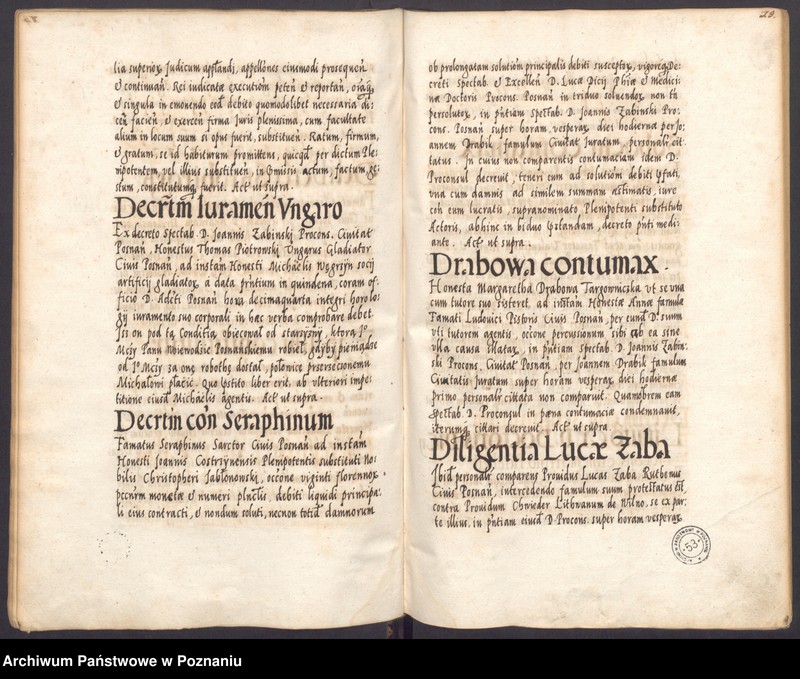 lia superiox Judicum appllandi, appellones eiusmodi prosequen̄
& continuan̄. Rei iudicatæ executiōm peten̄ & reportan̄, oīaq̢
& singula in emonendo eod̄ debito quomodolibet necessaria di-
cen̄ facien̄, & exercen̄ firma Juris plenissima, cum facultate
alium in locum suum si opus fuerit, substituen̄. Ratum, firmum,
& gratum, se id habiturum promittens, quicqd̄ per dictum Ple-
nipotentem, vel illius substituen̄, in p̄missis actum, factum, ge-
stum, constitutumq̢ fuerit. Act̄ ut supra.
Decrt̄m Iuramen̄ Vngaro
Ex decreto Spectab. D. Joannis Zabinskj Procons. Ciuitat̄
Posnan̄, Honestus Thomas Piotrowskj Vngarus Gladiator
Ciuis Posnan̄, ad instan̄ Honesti Michaelis Węgrzyn socij
artificij gladiator, a data pn̄tium in quindena, coram of-
ficio D. Adct̄i Posnan̄ hora decimaquarta integri horolo-
gij iuramento suo corporali in hæc verba comprobare debet.
Jss on pod tą Conditią obiecował od starszyzny, ktorą Jº
Mczy Panu Woienodzic Posnanskiemu robieł, gdyby pieniądze
od Jº Mczy za onę robothę dostał, połowice przerzeconemu
Michałowi płacić. Quo p̄stito liber erit, ab vlteriori impe-
titione eiusd̄ Michaelis agentis. Act̄ ut supra.
Decrt̄m con̄ Seraphinum
Famatus Seraphinus Sarctor Ciuis Posnan̄ ad instan̄
Honesti Joannis Costrzynensis Plenipotentis substituti No-
bilis Christopheri Jabłonowskj, occōne viginti florennox
pecūn̄ monetæ & numeri pln̄clis, debiti liquidi principa-
li eius contracti, & nondum soluti, necnon totid̄ damnorum
28.
ob prolongatam solutiōm principalis debiti susceptox, vigoreq̢ De-
creti Spectab. & Excellen̄ D. Lucæ Dicij Phiæ & Medici-
næ Doctoris Procons. Posnan̄ in triduo soluendox non tn̄
persolutox, in pn̄tiam Spectab. D. Joannis Zabinski Pro-
cons. Posnan̄ super horam vesperax diei hodierna per Jo-
annem Drabik famulum Ciuitat̄ Juratum, personalr̄ cit-
tatus. In cuius non comparentis contumaciam idem D.
Proconsul decreuit, teneri eum ad solutiōm debiti p̄fati,
vna cum damnis ad similem summam æstimatis, iure
con̄ eum lucratis, supranominato Plenipotenti substituto
Actoris, abhinc in biduo p̄standam, decreto pn̄ti medi-
ante. Act̄ ut supra.
Drabowa contumax.
Honesta Margaretha Drabowa Targowniczka vt se vna
cum tutore suo sisteret, ad instan̄ Honestæ Annæ famulæ
Famati Ludouici Pistoris Ciuis Posnan̄, per eund̄ D. suum
vti tutorem agentis, occōne percussionum sibi ab ea sine
vlla causa illatax, in pn̄tiam Spectab. D. Joannis Zabin-
ski Procons. Ciuitat̄ Posnan̄, per Joannem Drabik famulum
Ciuitatis Juratum super horam vesperax diei hodierna
primo personalr̄ cittata non comparuit. Quamobrem eam
Spectab. D. Proconsul in pœna contumaciæ condemnauit,
iterumq̢ cittari decreuit. Act̄ ut supra
Diligentia Lucæ Zaba
Ibid̄ personalr̄ comparens Prouidus Lucas Zaba Ruthenus
Ciuis Posnan̄, intercedendo famulum suum protestatus est
contra Prouidum Chwieder Lithuanum de Wilno, se ex par-
te illius, in pn̄tiam eiusd̄ D. Procons. super horam vesperax
53
Archiwum Państwowe w Poznaniu